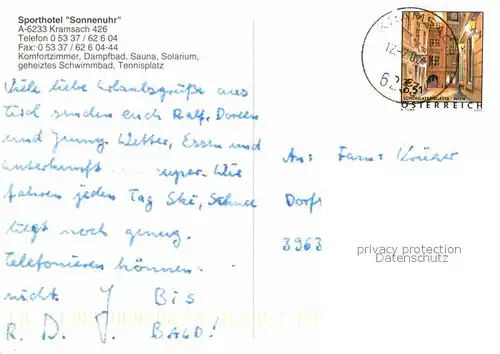 Sporthotel "Sonnenuhr"
A-6233 Kramsach 426
Telefon 0 53 37 / 62 6 04
Fax: 0 53 37 / 62 6 04-44
Komfortzimmer, Dampfbad, Sauna, Solarium,
geheiztes Schwimmbad, Tennisplatz
Viele liebe Urlaubsgrüße aus
Tirol senden euch Ralf, Doreen
und Jenny. Wetter, Essen und
Unterkunft super. Wir
fahren jeden Tag Ski, Schnee
liegt noch genug.
Telefonieren können
nicht. J Bis
R. D. J. BALD!
€ 0,51
SCHÖNLATERNGASSE WIEN
ÖSTERREICH
An: Fam: Krüger
Dorfs
3963
privacy protection
Datenschutz